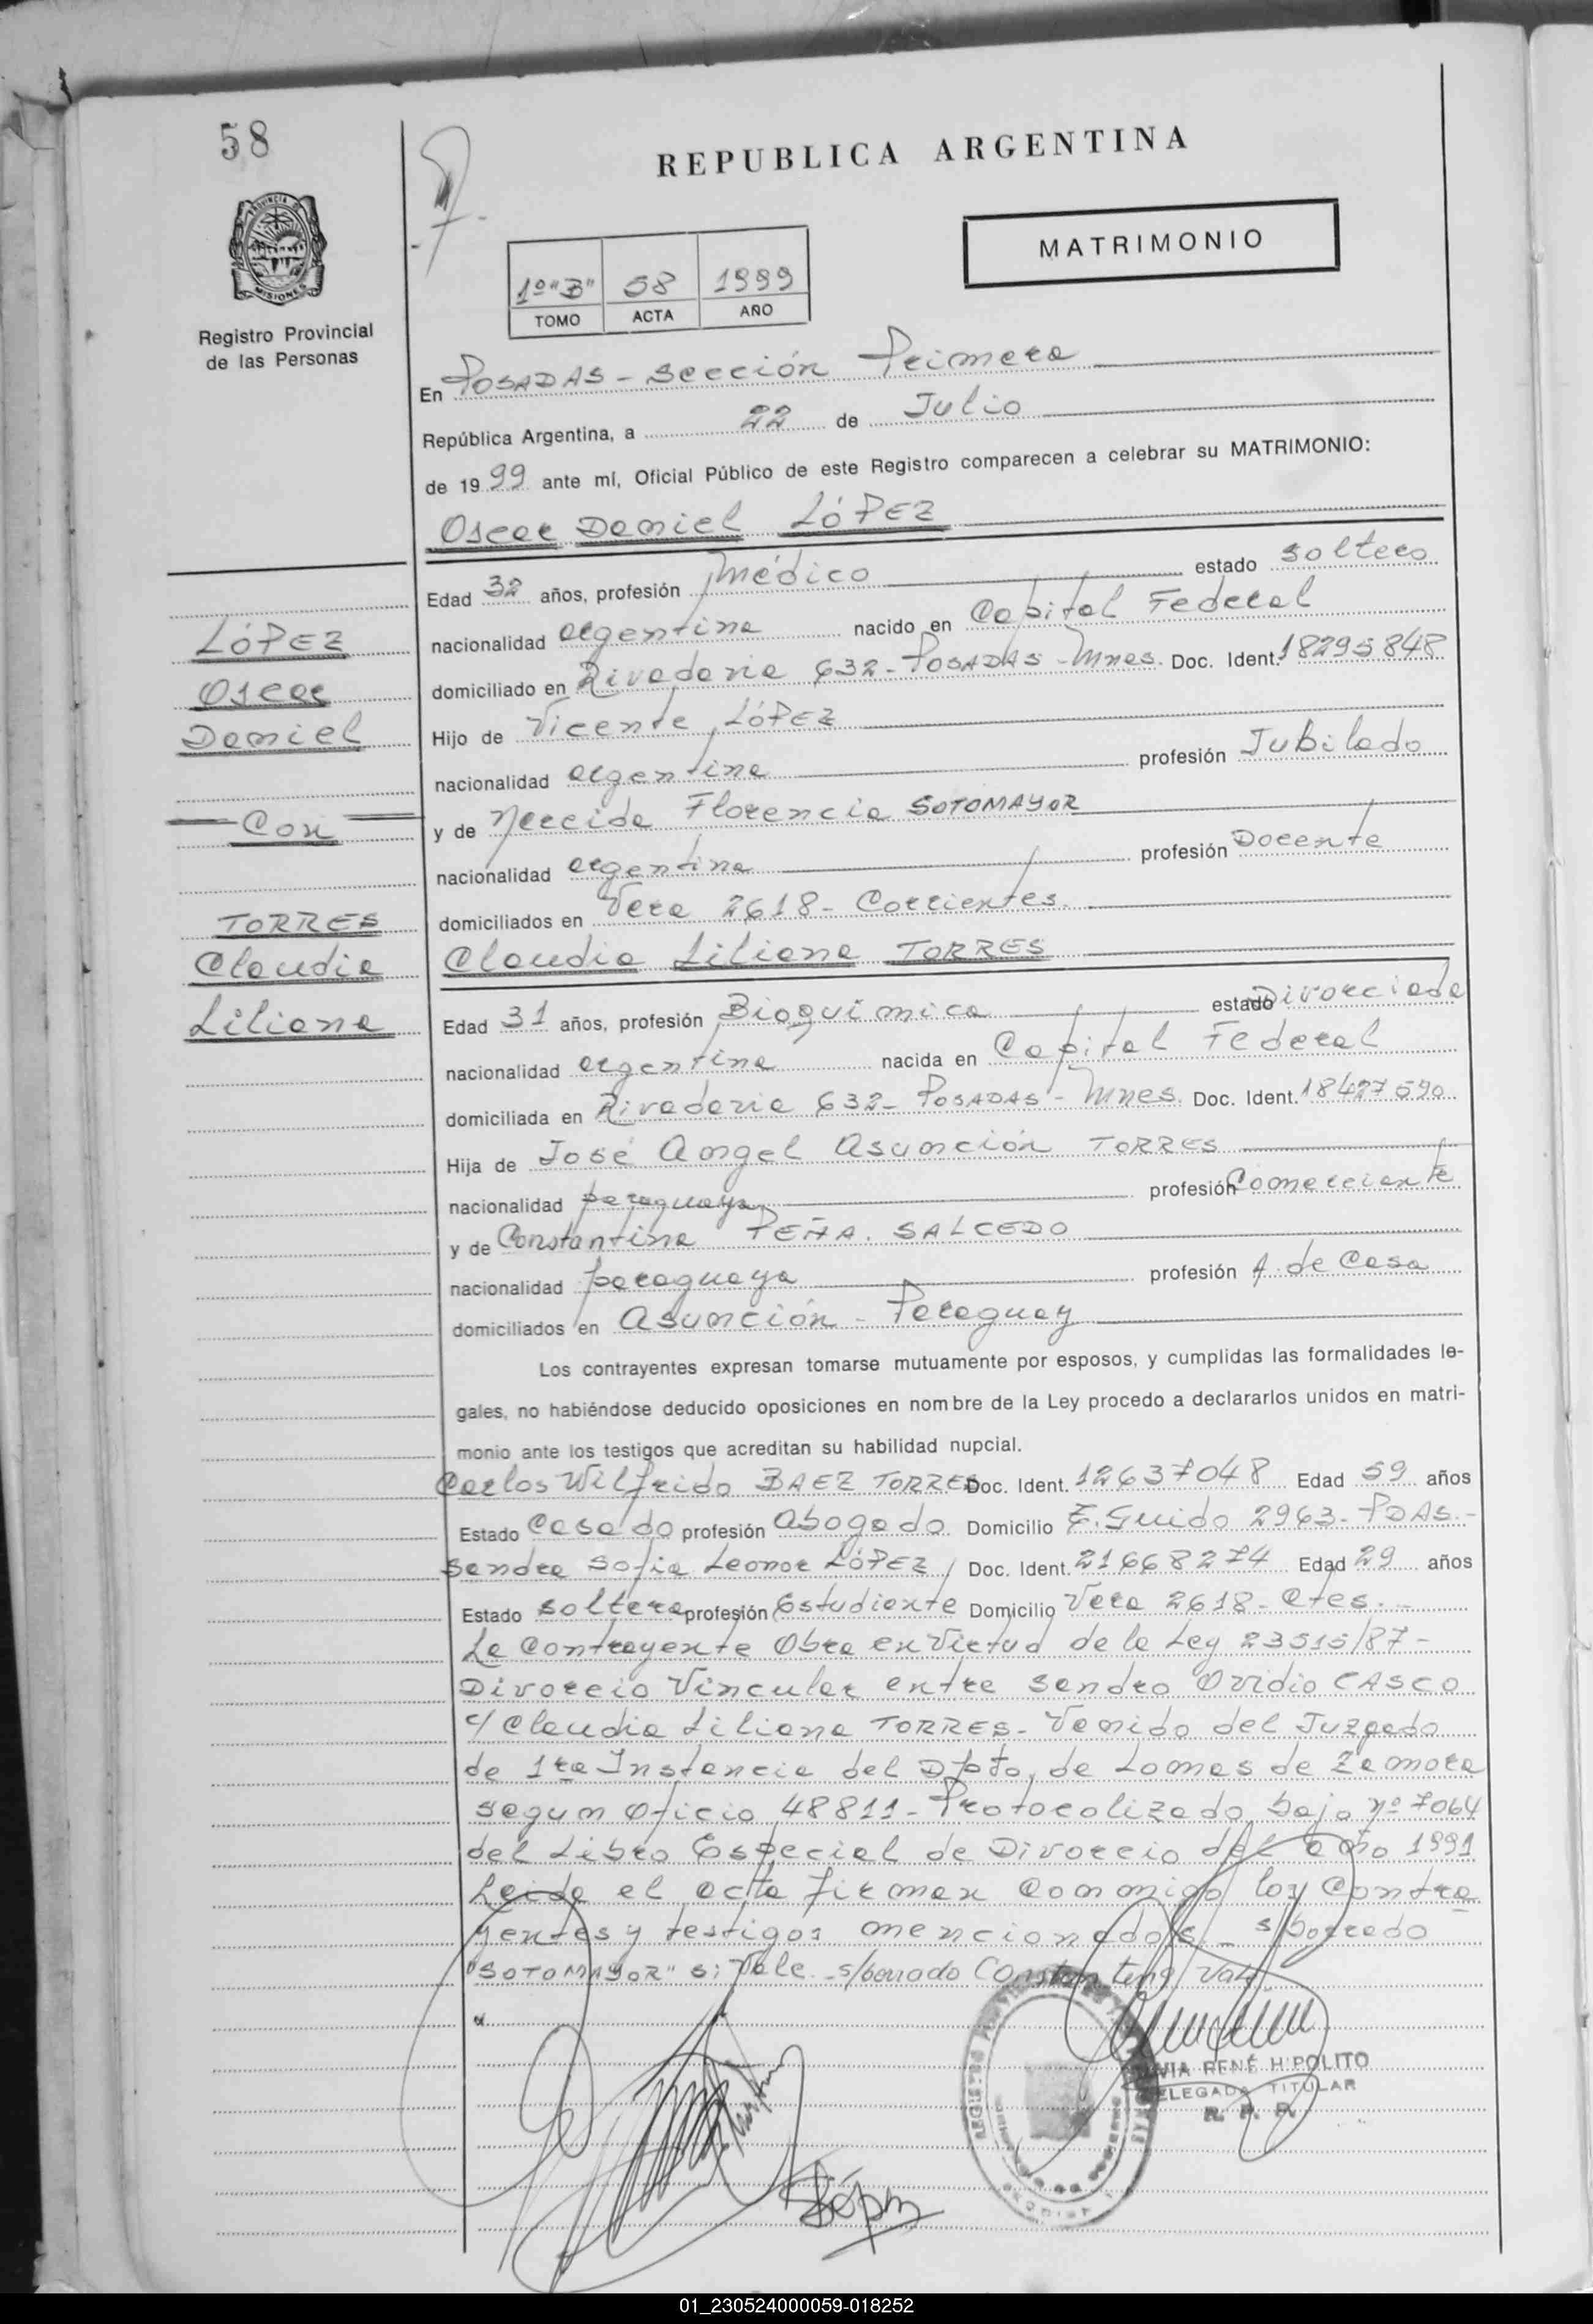 58
REPUBLICA ARGENTINA
MATRIMONIO
PROVINCIA DE
MISIONES
Registro Provincial
de las Personas
1º "B" 58 1999
TOMO ACTA AÑO
En POSADAS - Sección Primera
República Argentina, a 22 de Julio
de 1999 ante mí, Oficial Público de este Registro comparecen a celebrar su MATRIMONIO:
Oscar Daniel LÓPEZ
Edad 32 años, profesión Médico estado soltero
nacionalidad argentina nacido en Capital Federal
domiciliado en Rivadavia 632 - POSADAS - Mnes. Doc. Ident. 18295848
Hijo de Vicente LÓPEZ
nacionalidad argentina profesión Jubilado
y de Nercida Florencia SOTOMAYOR
nacionalidad argentina profesión Docente
domiciliados en Vera 2618 - Corrientes.
LÓPEZ
Oscar
Daniel
Con
TORRES
Claudia
Liliana
Claudia Liliana TORRES
Edad 31 años, profesión Bioquímica estado Divorciada
nacionalidad argentina nacida en Capital Federal
domiciliada en Rivadavia 632 - POSADAS - Mnes. Doc. Ident. 18427590
Hija de José Angel Asunción TORRES
nacionalidad paraguaya profesión Comerciante
y de Constantina PEÑA. SALCEDO
nacionalidad paraguaya profesión A. de Casa
domiciliados en Asunción - Paraguay
Los contrayentes expresan tomarse mutuamente por esposos, y cumplidas las formalidades le-
gales, no habiéndose deducido oposiciones en nombre de la Ley procedo a declararlos unidos en matri-
monio ante los testigos que acreditan su habilidad nupcial.
Carlos Wilfrido BAEZ TORRES Doc. Ident. 12637048 Edad 59 años
Estado Casado profesión Abogado Domicilio F. Guido 2963 - PDAS. -
Sandra Sofia Leonor LÓPEZ Doc. Ident. 21668274 Edad 29 años
Estado soltera profesión Estudiante Domicilio Vera 2618 - Ctes. -
La Contrayente Obra en Virtud de la Ley 23515/87 -
Divorcio Vincular entre Sandro Ovidio CASCO
c/ Claudia Liliana TORRES - Venido del Juzgado
de 1ra Instancia del Dpto, de Lomas de Zamora
segun Oficio 48811 - Protocolizado bajo Nº 7064
del Libro Especial de Divorcio del año 1991
Leida el acta firman conmigo los Contra
yentes y testigos mencionados - s/borrado
"SOTOMAYOR" si Vale. - s/borrado Constantina Vale
López
RENÉ HIPOLITO
DELEGADA TITULAR
R. P. P.
01_230524000059-018252